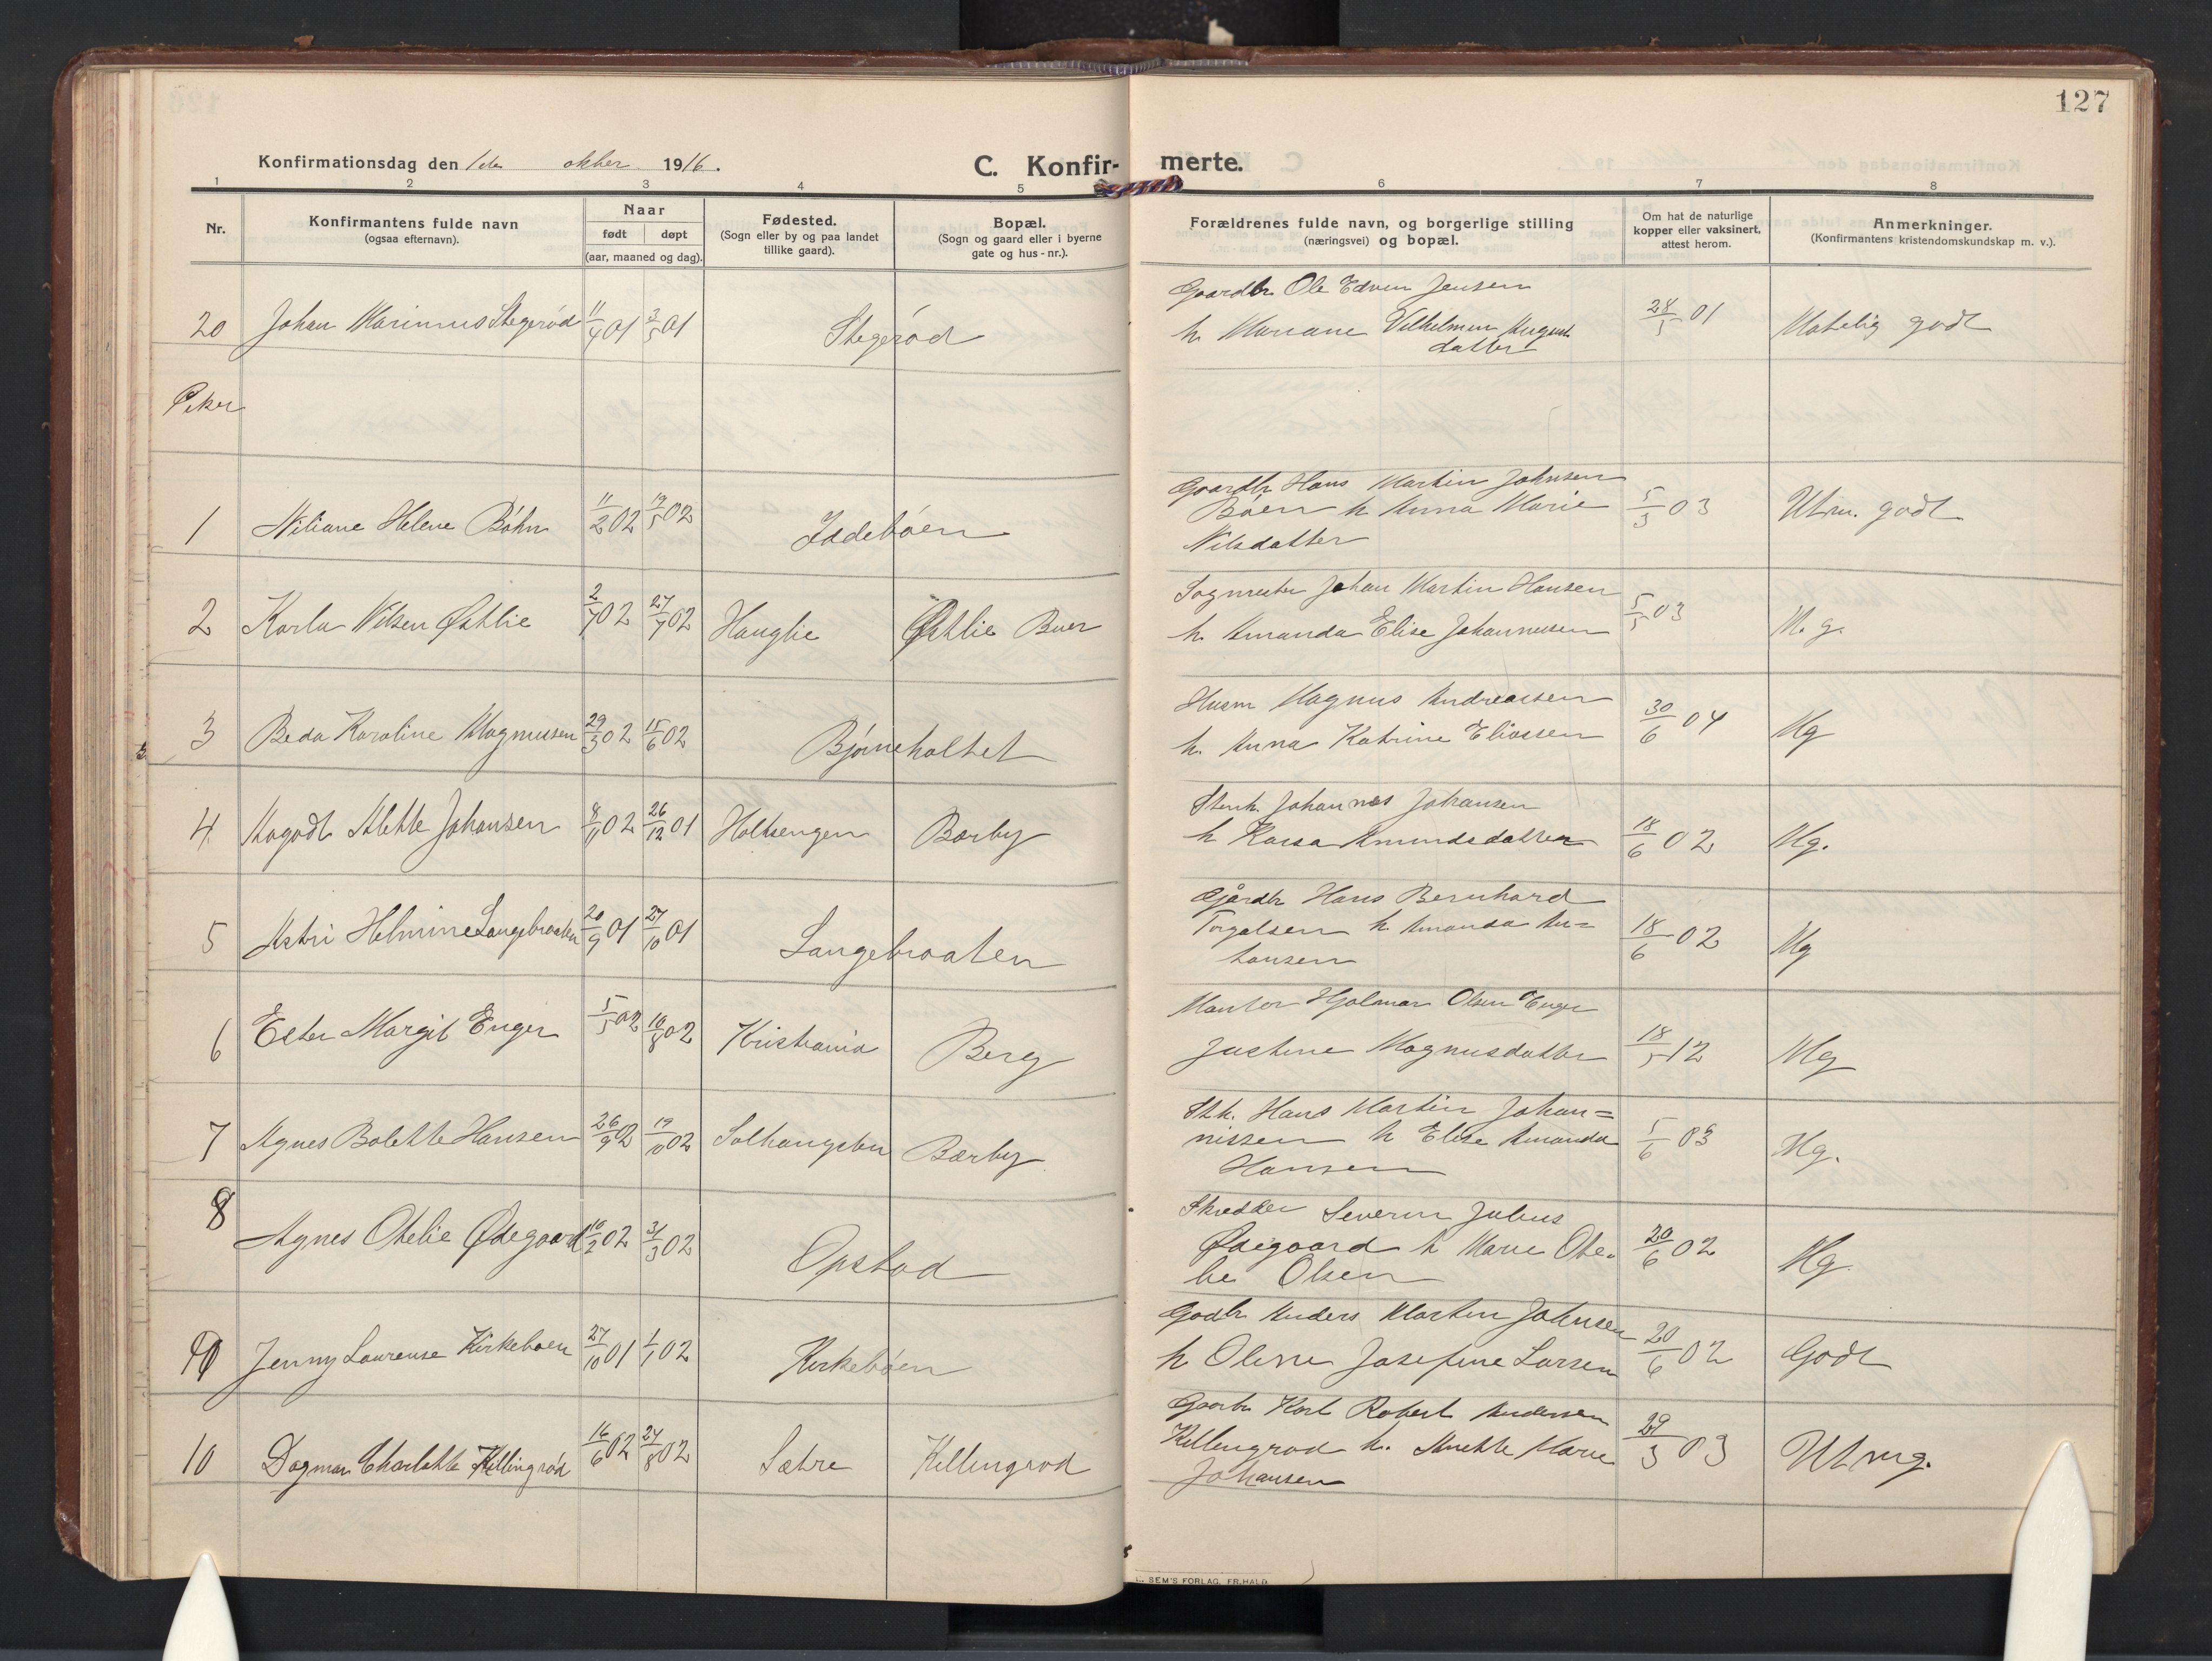 127
Konfirmationsdag den 1ste oktber 1916.
C. Konfir- merte.
1 2 3 4 5 6 7 8
Nr.
Konfirmantens fulde navn
(ogsaa efternavn).
Naar
født døpt
(aar, maaned og dag).
Fødested.
(Sogn eller by og paa landet
tillike gaard).
Bopæl.
(Sogn og gaard eller i byerne
gate og hus-nr.).
Forældrenes fulde navn, og borgerlige stilling
(næringsvei) og bopæl.
Om hat de naturlige
kopper eller vaksinert,
attest herom.
Anmerkninger.
(Konfirmantens kristendomskundskap m. v.).
Gaardbr Ole Edvin Jensen
20 Johan Marinius Stegerød 11/4 01 3/5 01 Stegerød h. Mariane Vilhelmine August 28/5 01 Maatelig godt
datter
Piker
Gaardbr Hans Martin Johnsen
1 Niliane Helene Bøhn 11/2 02 19/5 02 Iddebøen Bøen h Anna Marie 5/3 03 Utm. godt
Nilsdatter
Sagmester Johan Martin Hansen
2 Karla Nilsen Østlie 2/7 02 27/7 02 Hauglie Østlie Buer h. Amanda Elise Johannesen 5/5 03 M. g.
Husm Magnus Andreassen
3 Beda Karoline Magnusen 29/3 02 15/6 02 Bjørneholtet h. Anna Katrine Eliassen 30/6 04 Mg
Stenh. Johannes Johansen
4 Magodt Alette Johansen 8/11 02 26/12 01 Holtsengen Børby h Kaisa Amundsdatter 18/6 02 Mg.
Gårdbr Hans Bernhard
5 Astri Helmine Langebraaten 20/9 01 27/10 01 Langebraaten Torgalsen h Amanda An=
tonsen 18/6 02 Mg
Hjalmar Olsen Enger
6 Ester Margit Enger 5/5 02 10/8 02 Kristiania Berg Justine Magnusdatter 18/5 12 Mg
Sth. Hans Martin Johan=
7 Agnes Bolette Hansen 26/9 02 19/10 02 Solhaugebu Børby nissen h Elise Amanda 5/6 03 Mg.
Hansen
Skredder Severin Julius
8 Agnes Otelie Ødegaard 10/2 02 31/3 02 Opstad Ødegaard h Marie Ote=
lie Olsen 20/6 02 Mg.
Gadbr Anders Martin Johnsen
9 Jenny Laurense Kirkebøen 27/10 01 1/1 02 Kirkebøen h Oline Josefine Larsen 20/6 02 Godt
Gaarbr Karl Robert Andersen
10 Dagmar Charlotte Killingrød 16/6 02 24/8 02 Sætre Killingrød Killingrød h. Anette Marie 29/3 03 Utmg.
Johansen
SEM'S FORLAG, FR.HALD